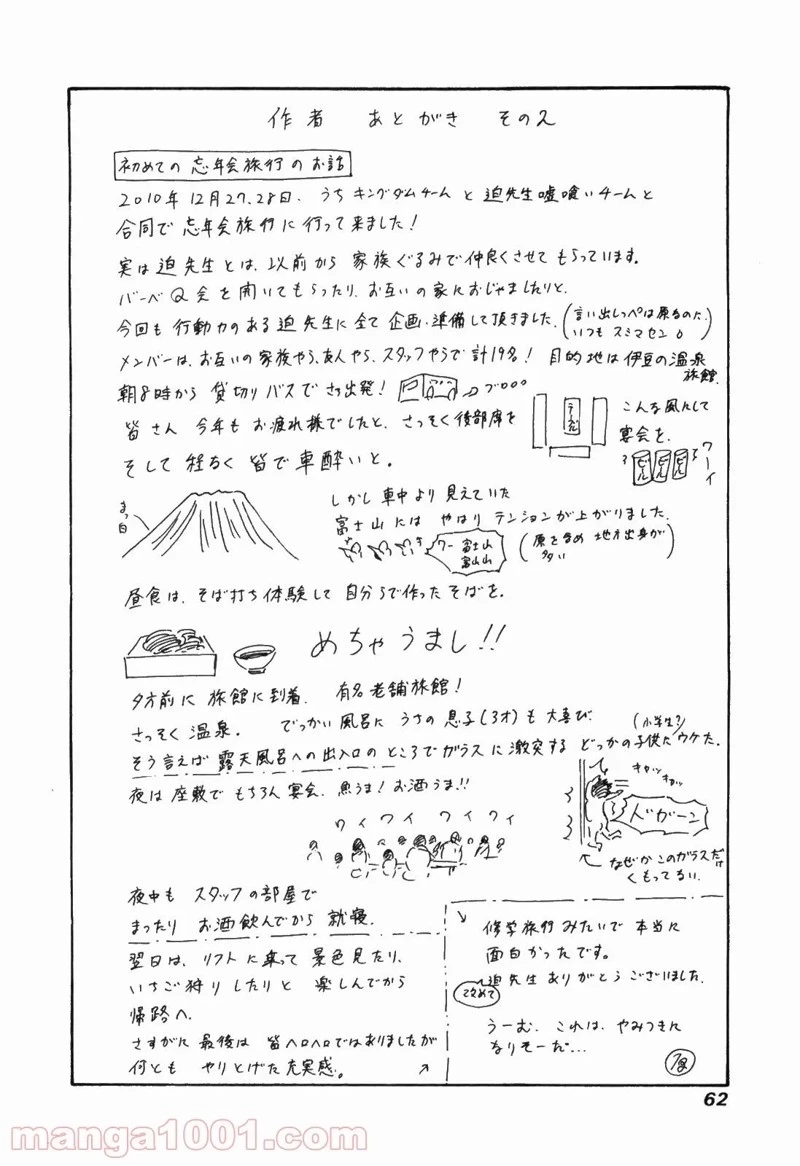 作者 あとがき その2
初めての 忘年会旅行のお話
2010年12月27、28日、うちキングダムチームと迫先生嘘喰いチームと
合同で忘年会旅行に行って来ました!
実は迫先生とは、以前から家族ぐるみで仲良くさせてもらっています。
バーベQ会を開いてもらったり、お互いの家におじゃましたりと、
今回も行動力のある迫先生に全て企画・準備して頂きました。(言い出しっぺは原なのに、
いつもスミマセン。)
メンバーは、お互いの家族やら、友人やら、スタッフやらで計19名! 目的地は伊豆の温泉
旅館。
朝8時から貸切りバスでさっ出発!
ブロロロ
皆さん今年もお疲れ様でしたと、さっそく後部席を
こんな風にして
宴会を、
テーブル
ビール ビール ビール
ワーイ
そして程なく皆で車酔いと。
まっ白
しかし車中より見えていた
富士山にはやはりテンションが上がりました。
ワー 富士山
富山山
(原を含め地方出身が
多い)
昼食は、そば打ち体験して自分らで作ったそばを。
めちゃうまし!!
夕方前に旅館に到着。有名老舗旅館!
さっそく温泉。でっかい風呂にうちの息子(3才)も大喜び。
そう言えば露天風呂への出入口のところでガラスに激突するどっかの子供(小学生?)にウケた。
キャッ キャッ
ドガーン
なぜかこのガラスだけ
くもってない。
夜は座敷でもちろん宴会。魚うま!お酒うま!!
ワイワイ ワイワイ
夜中もスタッフの部屋で
まったりお酒飲んでから就寝。
翌日は、リフトに乗って景色見たり、
いちご狩りしたりと楽しんでから
帰路へ。
さすがに最後は皆ヘロヘロではありましたが
何ともやりとげた充実感。
修学旅行みたいで本当に
面白かったです。
改めて
迫先生ありがとうございました。
うーむ、これは、やみつきに
なりそーだ…
原
62
manga1001.com